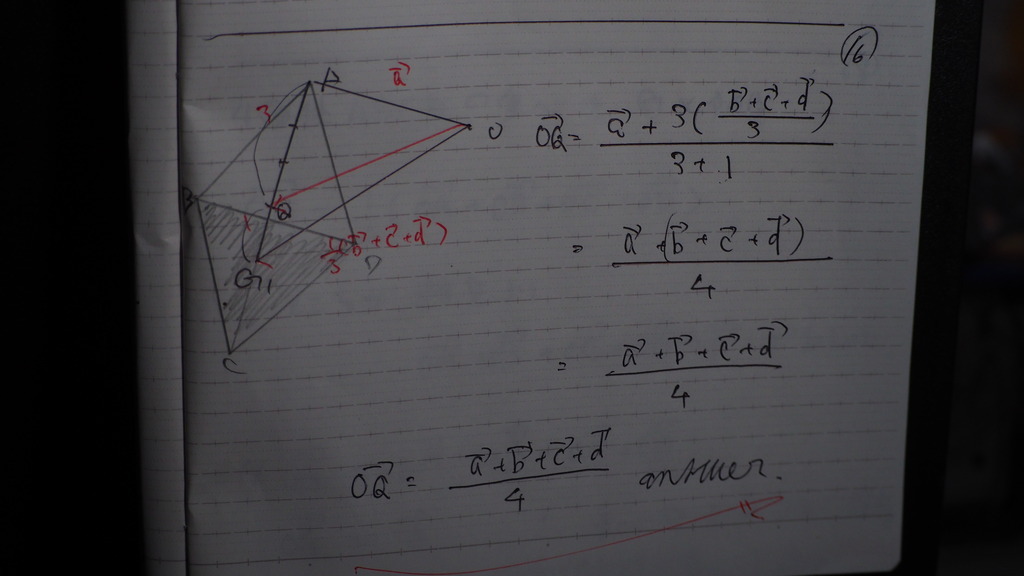 16
A
a⃗
3
O
B
Q
1
1/3(b⃗+c⃗+d⃗)
D
G₁
C
OQ⃗ = (a⃗ + 3((b⃗+c⃗+d⃗)/3))/(3+1)
= (a⃗ + (b⃗+c⃗+d⃗))/4
= (a⃗+b⃗+c⃗+d⃗)/4
OQ⃗ = (a⃗+b⃗+c⃗+d⃗)/4 answer.